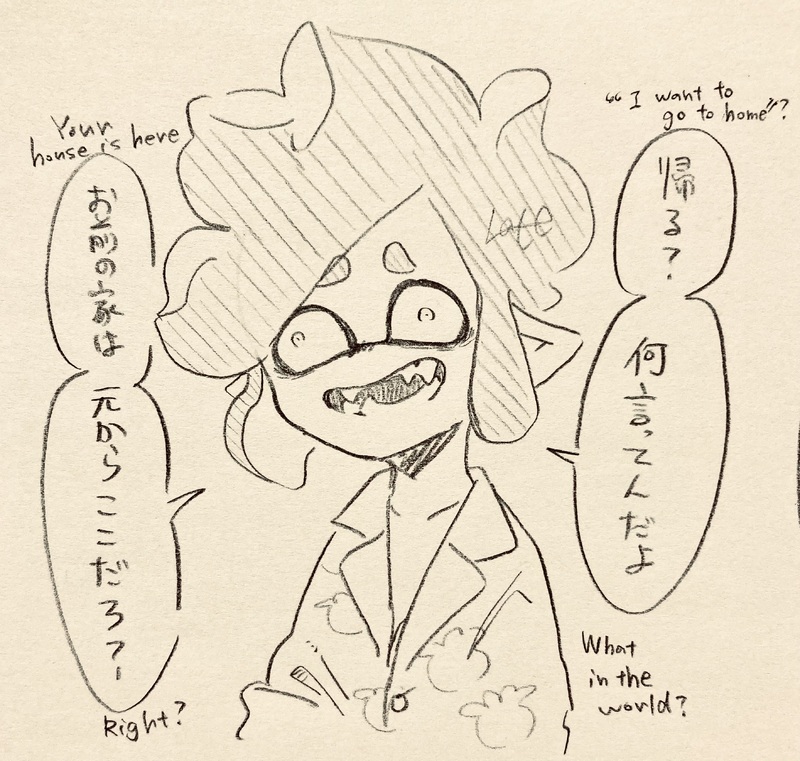 “I want to
go to home”?
帰る?
何言ってんだよ
What
in the
world?
Your
house is here
お前の家は
元からここだろ?
Right?
Late